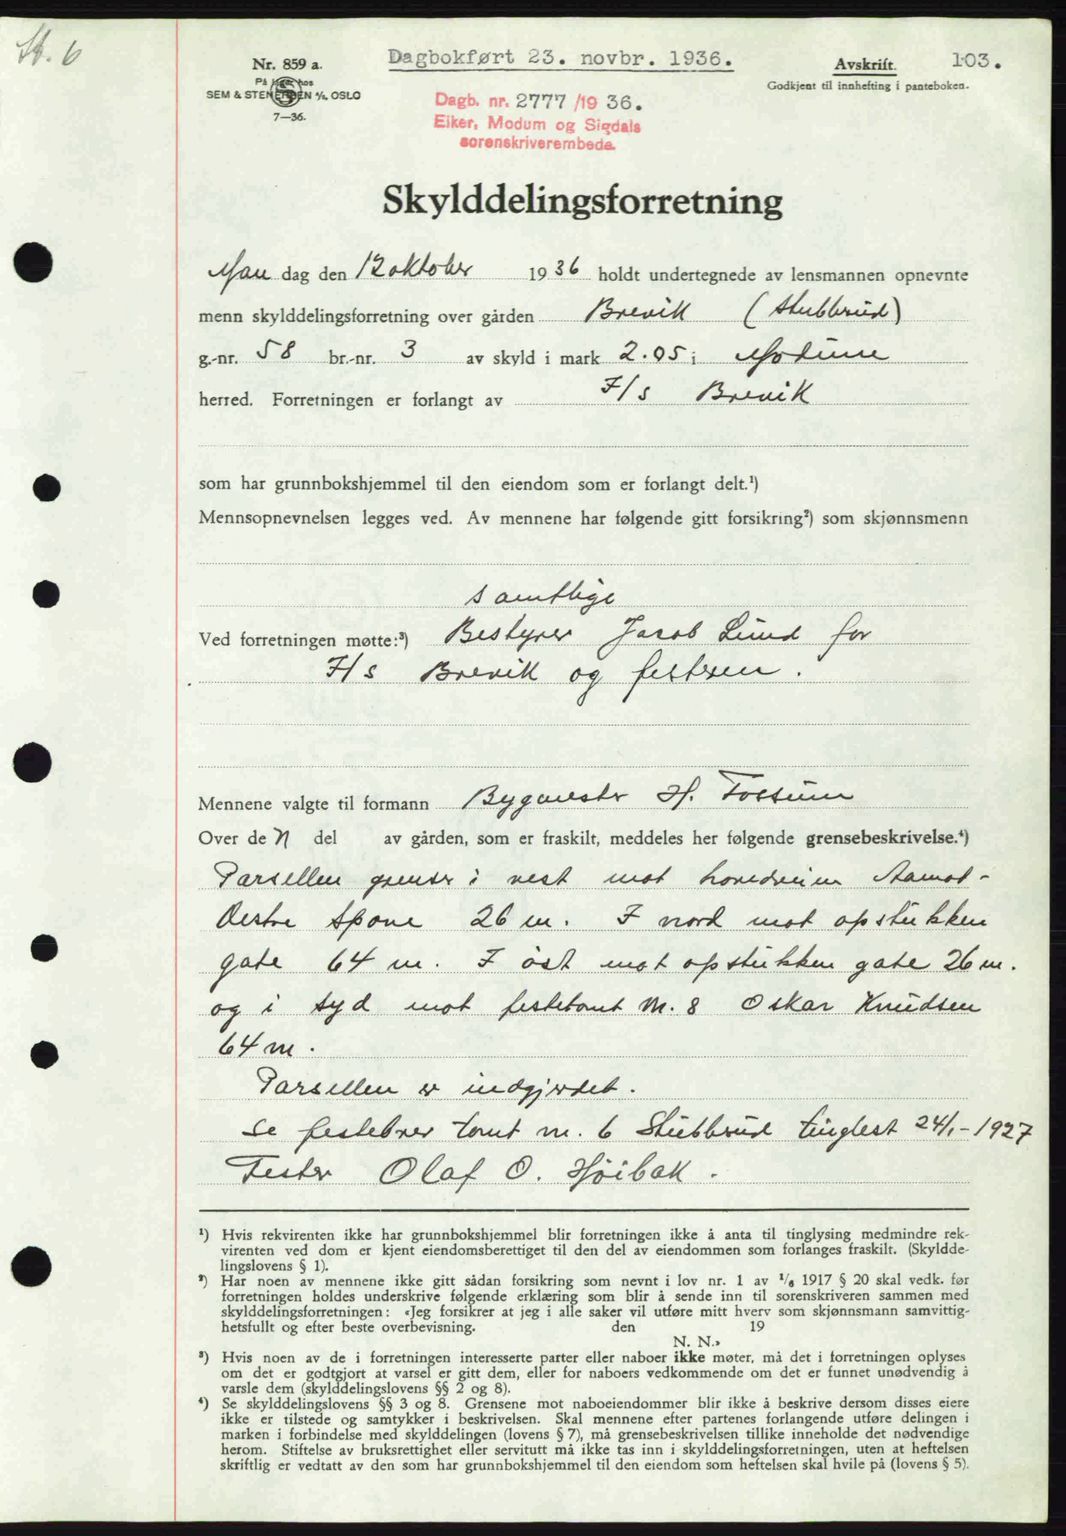 St. 6
Nr. 859 a.
På lager hos
SEM & STENERSEN A/S, OSLO
7—36.
Dagbokført 23. novbr. 1936.
Avskrift.
103.
Godkjent til innhefting i panteboken.
Dagb. nr. 2777/19 36.
Eiker, Modum og Sigdals
sorenskriverembede.
Skylddelingsforretning
Man dag den 12 oktober 1936 holdt undertegnede av lensmannen opnevnte
menn skylddelingsforretning over gården Brevik (Stubbrud)
g.-nr. 58 br.-nr. 3 av skyld i mark 2.05 i Modum
herred. Forretningen er forlangt av I/s Brevik
som har grunnbokshjemmel til den eiendom som er forlangt delt.¹)
Mennsopnevnelsen legges ved. Av mennene har følgende gitt forsikring²) som skjønnsmenn
samtlige
Ved forretningen møtte:³) Bestyrer Jacob Lund for
I/s Brevik og festeren.
Mennene valgte til formann Bygmester H. Fossum
Over de n del av gården, som er fraskilt, meddeles her følgende grensebeskrivelse.⁴)
Parsellen grenser i vest mot hovedveien Aamot-
Vestre Spone 26 m. I nord mot opstukken
gate 64 m. I öst mot opstukken gate 26 m.
og i syd mot festetomt nr. 8 Oskar Knudsen
64 m.
Parsellen er indgjerdet.
Se festebrev tomt nr. 6 Stubbrud tinglest 24/1-1927
Fester Olaf O. Höibak.
¹) Hvis rekvirenten ikke har grunnbokshjemmel blir forretningen ikke å anta til tinglysing medmindre rek-
virenten ved dom er kjent eiendomsberettiget til den del av eiendommen som forlanges fraskilt. (Skyldde-
lingslovens § 1).
²) Har noen av mennene ikke gitt sådan forsikring som nevnt i lov nr. 1 av 1/6 1917 § 20 skal vedk. før
forretningen holdes underskrive følgende erklæring som blir å sende inn til sorenskriveren sammen med
skylddelingsforretningen: «Jeg forsikrer at jeg i alle saker vil utføre mitt hverv som skjønnsmann samvittig-
hetsfullt og efter beste overbevisning. den 19
N. N.»
³) Hvis noen av de i forretningen interesserte parter eller naboer ikke møter, må det i forretningen oplyses
om det er godtgjort at varsel er gitt dem, eller for naboers vedkommende om det er funnet unødvendig å
varsle dem (skylddelingslovens §§ 2 og 8).
⁴) Se skylddelingslovens §§ 3 og 8. Grensene mot naboeiendommer blir ikke å beskrive dersom disses eiere
ikke er tilstede og samtykker i beskrivelsen. Skal mennene efter partenes forlangende utføre delingen i
marken i forbindelse med skylddelingen (lovens § 7), må grensebeskrivelsen tillike inneholde det nødvendige
herom. Stiftelse av bruksrettighet eller servitutt må ikke tas inn i skylddelingsforretningen, uten at heftelsen
skriftlig er vedtatt av den som har grunnbokshjemmel til den eiendom som heftelsen skal hvile på (lovens § 5).